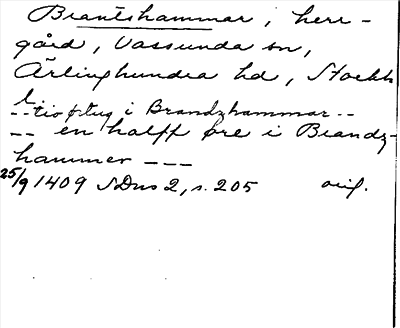 Brantshammar, herr-
gård, Vassunda sn,
Ärlinghundra hd, Stockh
l.
--tioftug i Brandzhammar--
-- en halff øre i Brandz-
hammer ---
25/9 1409 SDns 2, s. 205 orig.